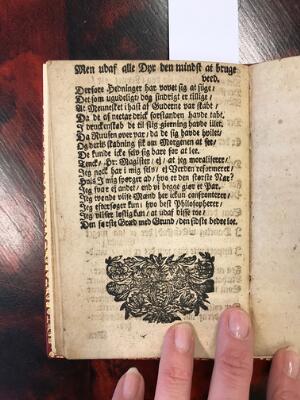 Men udaf alle Dyr den mindst at bruge
veed.
Derfore Hedninger har vovet sig at sige/
Det som ugudeligt/ dog sindrigt er tillige/
At Mennesket i hast af Guderne var skabt/
Da de af nectar drick forstanden havde tabt/
I druckenskab de til slig giering havde lyst.
Da Ruusen over var/ da de sig havde hvilet/
Og deris skabning fik om Morgenen at see/
De kunde icke selv sig bare for at lee.
Tenck/ Hr. Magister/ ej/ at jeg moraliserer/
Jeg nock har i mig selv/ ej Verden reformerer
Hvis I mig spørger ad/ hvo er den største Nar?
Jeg svar ej andet/ end vi begge giør et Par.
Jeg tvende viise Mænd her ickun confronterer/
Jeg eftersøger kun/ hvo best Philosopherer/
Jeg vilser lystig kun/ at udaf disse toe/
Den første Græd med Grund/ den sidste bedst loe.